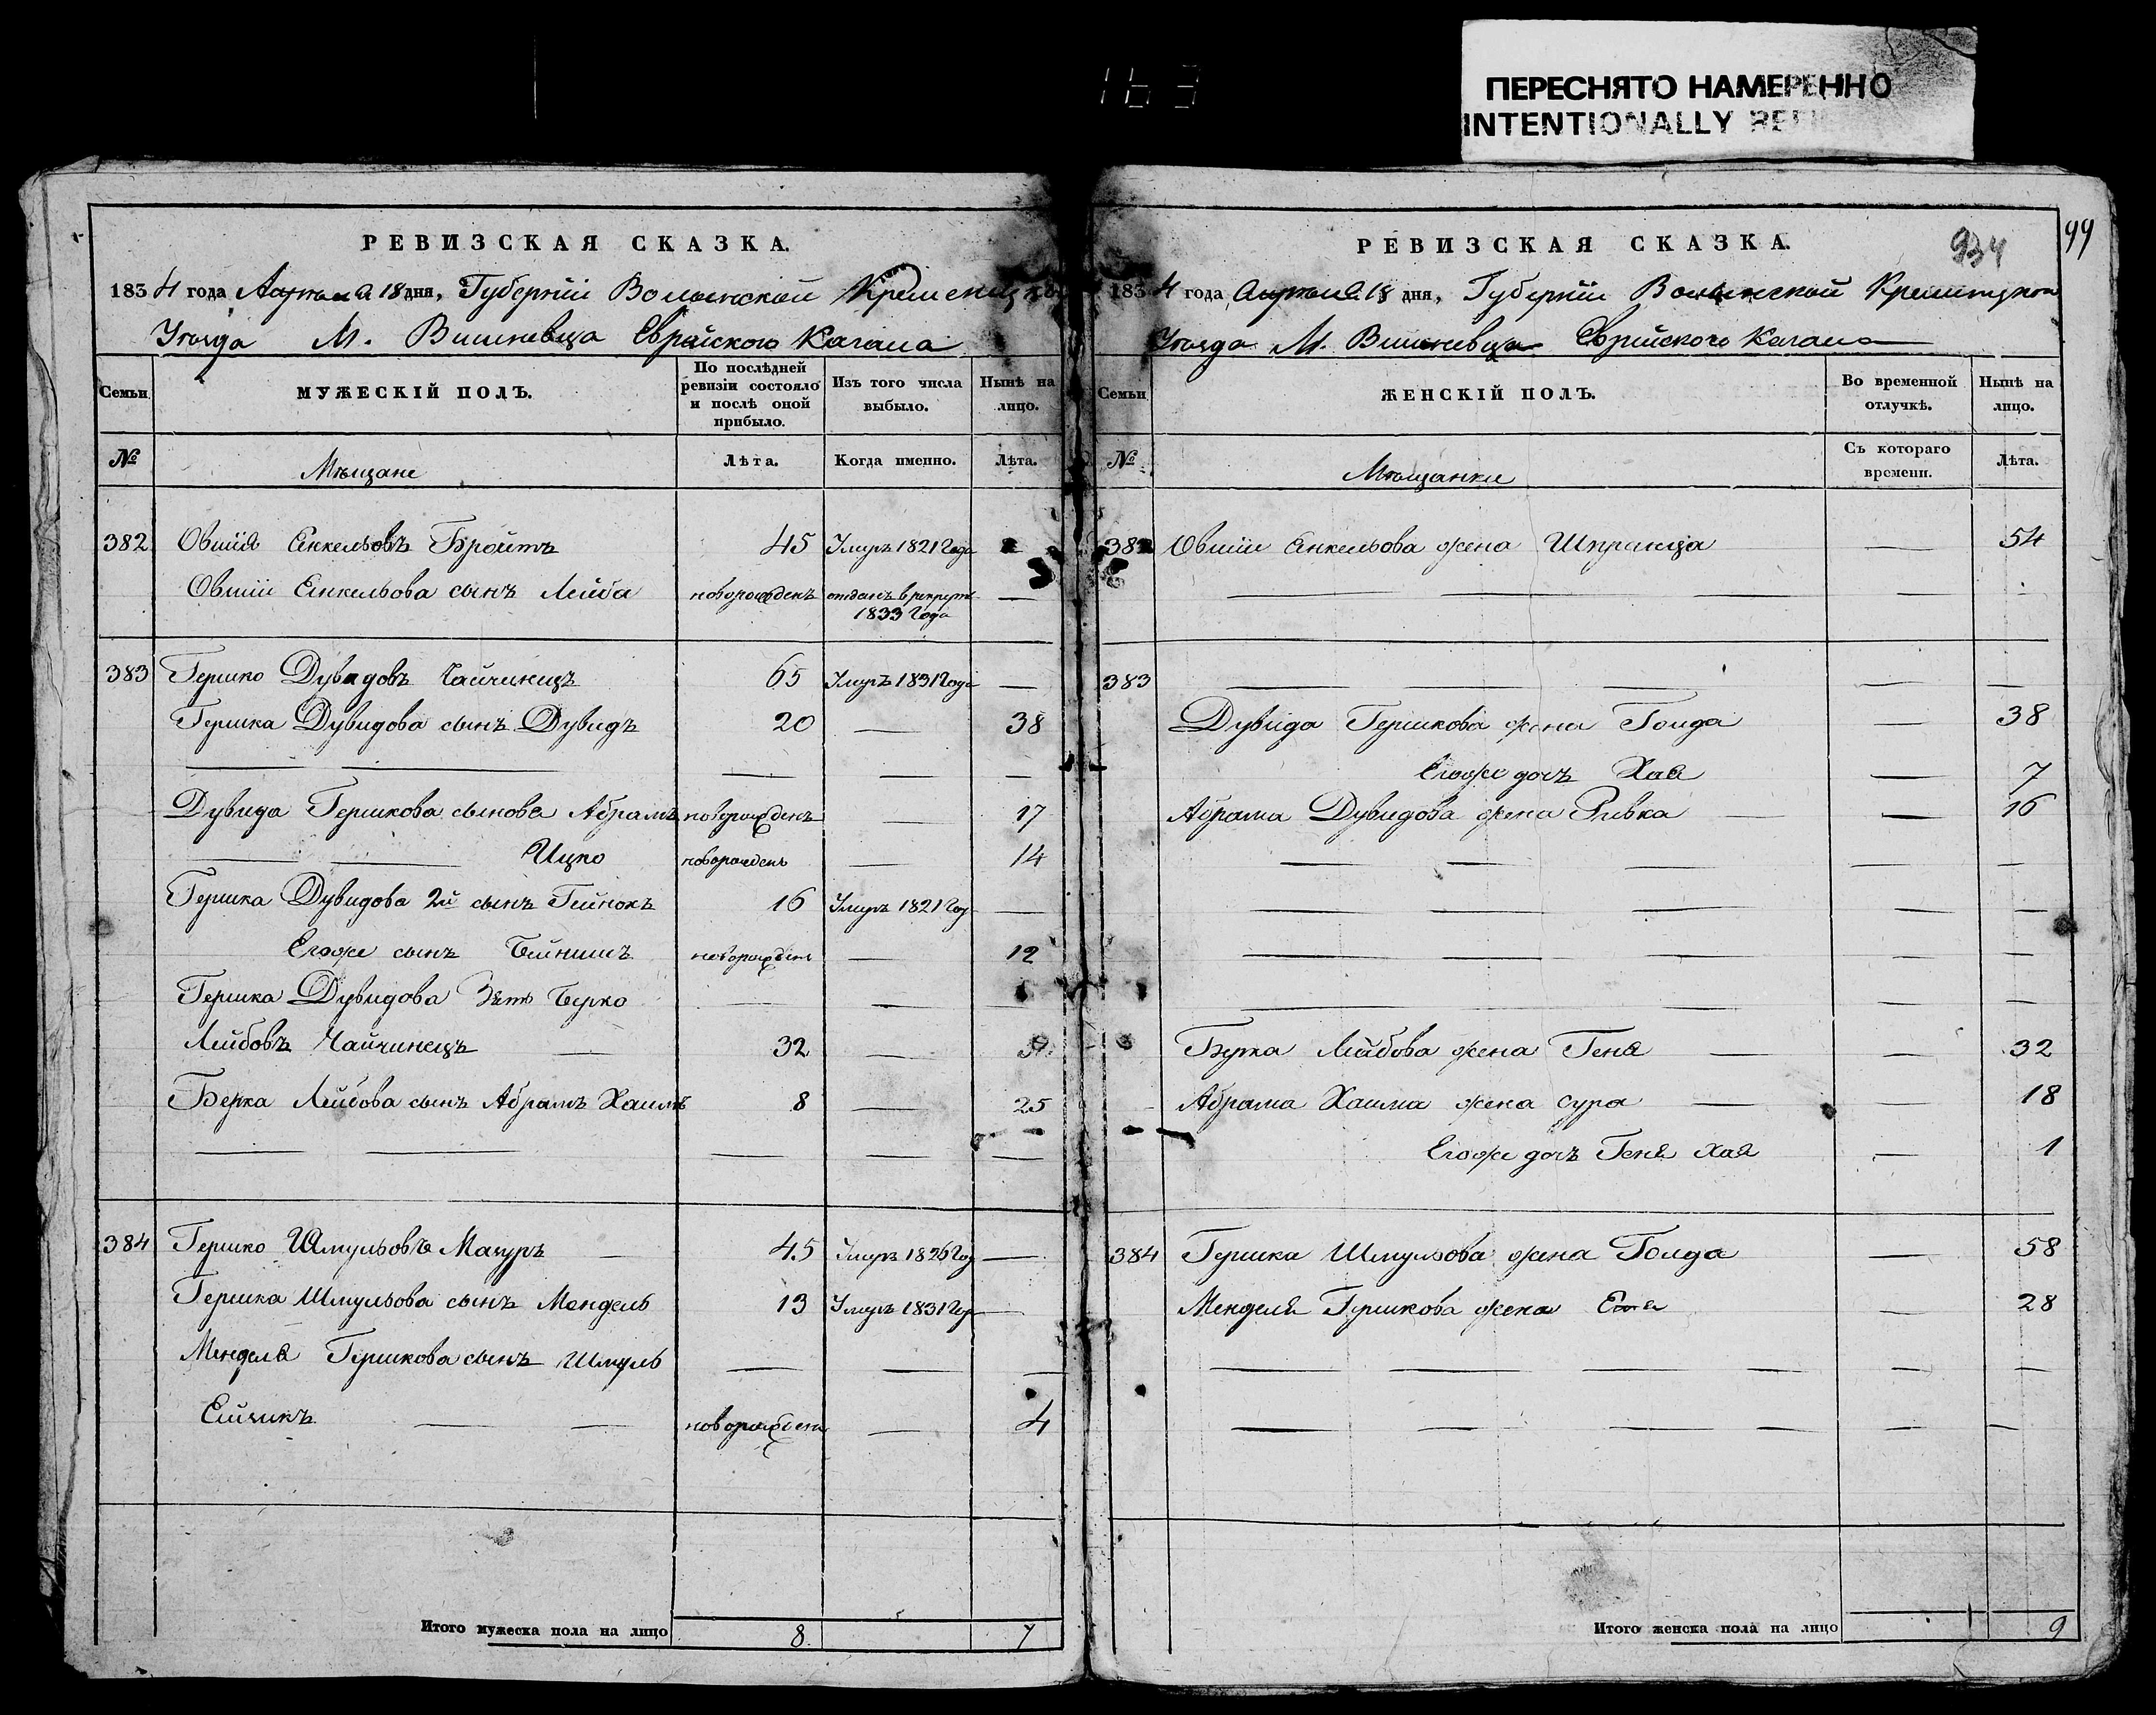 163
ПЕРЕСНЯТО НАМЕРЕННО
INTENTIONALLY
РЕВИЗСКАЯ СКАЗКА.
1834 года Апреля 18 дня, Губернiи Волынской Кременецко
Уѣзда М. Вишневца Еврейского Кагала
Семьи МУЖЕСКIЙ ПОЛЪ. По послѣдней ревизiи состояло и послѣ оной прибыло. Изъ того числа выбыло. Нынѣ на лицо.
№ Мѣщане Лѣта. Когда именно. Лѣта.
382 Овшiя Енкельовъ Бройтъ 45 Умеръ 1821 Года —
Овшiи Енкельова сынъ Лейба новорожденъ отданъ в рекруты 1833 Года —
383 Гершко Дувидовъ Чайчинецъ 65 Умеръ 1831 Года —
Гершка Дувидова сынъ Дувидъ 20 — 38
— — — — —
Дувида Гершкова сынова Абрамъ новорожденъ — 17
— — Ицко новорожденъ — 14
Гершка Дувидова 2й сынъ Гейнохъ 16 Умеръ 1821 Год —
Егоже сынъ Бейнишъ новорожденъ — 12
Гершка Дувидова Зять Берко — —
Лейбовъ Чайчинецъ — 32 —
Берка Лейбова сынъ Абрамъ Хаимъ 8 — 25
— — — — —
384 Гершко Шмульовъ Мазуръ — 45 Умеръ 1826 Год —
Гершка Шмульова сынъ Мендель 13 Умеръ 1831 Год —
Менделя Гершкова сынъ Шмуль — — —
Ейзикъ — — новорожденъ — 4
Итого мужеска пола на лицо 8 7
99
934
РЕВИЗСКАЯ СКАЗКА.
1834 года Апреля 18 дня, Губернiи Волынской Кременецкой
Уѣзда М. Вишневца Еврейского Кагала
Семьи ЖЕНСКIЙ ПОЛЪ. Во временной отлучкѣ. Нынѣ на лицо.
№ Мѣщанки Съ котораго времени. Лѣта.
382 Овшiи Енкельова жена Шпринца — 54
— — — — —
383 — — — — —
Дувида Гершкова жена Голда — 38
Егоже дочъ Хая — 7
Абрама Дувидова жена Ривка — — 16
— — — — —
— — — — —
— — — — —
— — — — —
Берка Лейбова жена Геня — — 32
Абрама Хаима жена Сура — — 18
Егоже дочъ Геня Хая — 1
384 Гершка Шмульова жена Голда — 58
Менделя Гершкова жена — 28
— — — — — —
— — — — — —
Итого женска пола на лицо 9